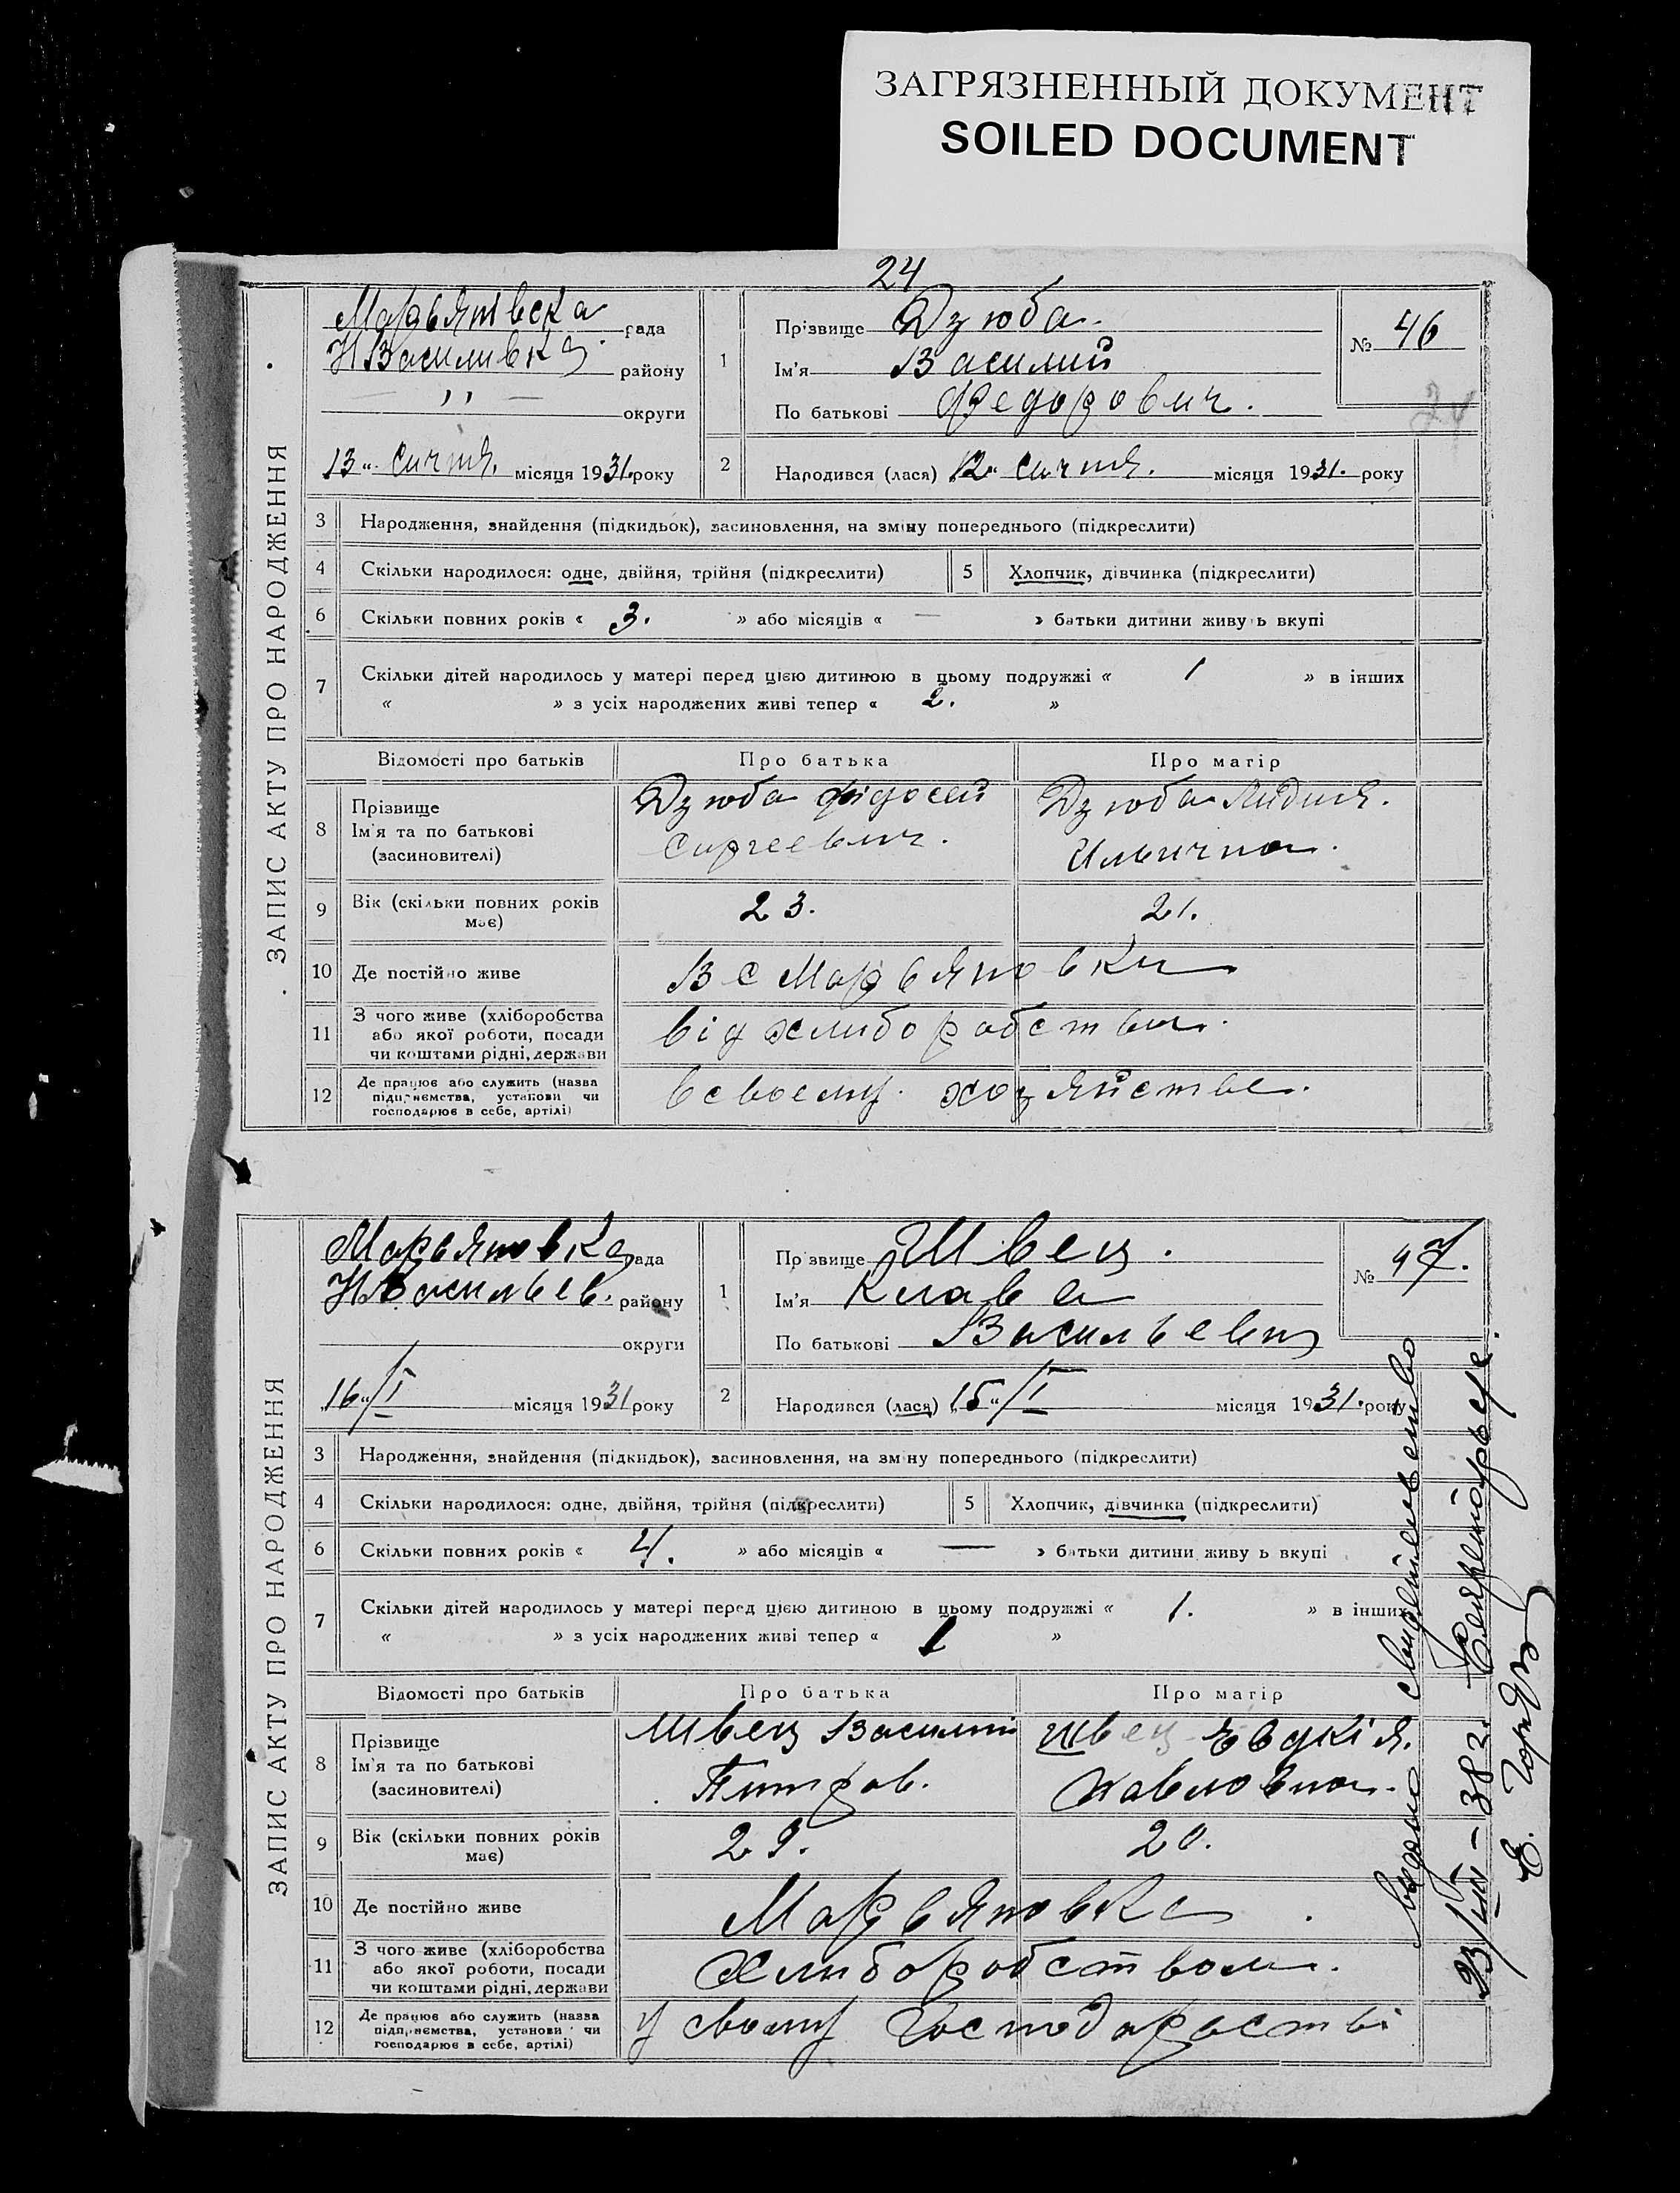 ЗАГРЯЗНЕННЫЙ ДОКУМЕНТ
SOILED DOCUMENT
24
ЗАПИС АКТУ ПРО НАРОДЖЕННЯ
Марьянівска рада
Н Василивка району
— ,, — округи
13 " Сичня. місяця 1931. року
1
Прізвище Дзюба.
Ім'я Василий
По батькові Федорович.
№ 46
24
2 Народився (лася) "12" Сичня. місяця 1931. року
3 Народження, знайдення (підкидьок), засиновлення, на зміну попереднього (підкреслити)
4 Скільки народилося: одне, двійня, трійня (підкреслити) 5 Хлопчик, дівчинка (підкреслити)
6 Скільки повних років « 3. » або місяців « — » батьки дитини живуть вкупі
7 Скільки дітей народилось у матері перед цією дитиною в цьому подружжі « 1 » в інших
« » з усіх народжених живі тепер « 2. »
Відомості про батьків Про батька Про матір
8 Прізвище
Ім'я та по батькові
(засиновителі)
Дзюба Фідосей
Сиргеевич.
Дзюба Лидия.
Ильична.
9 Вік (скільки повних років
має) 23. 21.
10 Де постійно живе В с Марьяновки
11 З чого живе (хліборобства
або якої роботи, посади
чи коштами рідні, держави
від хлиборобства.
12 Де працює або служить (назва
підприємства, установи чи
господарює в себе, артілі)
в своему хозяйстве.
ЗАПИС АКТУ ПРО НАРОДЖЕННЯ
Марьяновка рада
Н Васильев. району
округи
"16"/I місяця 1931 року
1
Прізвище Швец.
Ім'я Клава
По батькові Васильевна
№ 47.
2 Народився (лася) "15"/I місяця 1931. року
3 Народження, знайдення (підкидьок), засиновлення, на зміну попереднього (підкреслити)
4 Скільки народилося: одне, двійня, трійня (підкреслити) 5 Хлопчик, дівчинка (підкреслити)
6 Скільки повних років « 4. » або місяців « — » батьки дитини живуть вкупі
7 Скільки дітей народилось у матері перед цією дитиною в цьому подружжі « 1. » в інших
« » з усіх народжених живі тепер « 1 »
Відомості про батьків Про батька Про матір
8 Прізвище
Ім'я та по батькові
(засиновителі)
Швец Василий
Питров.
Швец Евдкія.
Павловна.
9 Вік (скільки повних років
має) 29. 20.
10 Де постійно живе Марьяновка.
11 З чого живе (хліборобства
або якої роботи, посади
чи коштами рідні, держави
Хлиборобством.
12 Де працює або служить (назва
підприємства, установи чи
господарює в себе, артілі)
у своему Господарстві
Видано свидетельство
23/VIII-38 г.